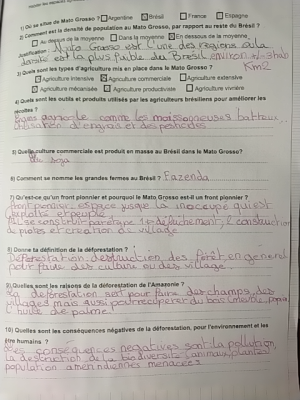 1) Où se situe de Mato Grosso ? Argentine Brésil France Espagne
2) Comment est la densité de population au Mato Grosso, par rapport au reste du Brésil ?
Au dessus de la moyenne Dans la moyenne En dessous de la moyenne
Justification : Mato Grosso est l'une des régions où la
densité est la plus faible du Brésil environ hab
Km2
3) Quels sont les types d'agriculture mis en place dans le Mato Grosso ?
Agriculture intensive Agriculture commerciale Agriculture extensive
Agriculture mécanisée Agriculture productiviste Agriculture vivrière
4) Quels sont les outils et produits utilisés par les agriculteurs brésiliens pour améliorer les
récoltes ?
comme les moissonneuses batteuses
utilisation d'engrais et des pesticides
5) Quelle culture commerciale est produit en masse au Brésil dans le Mato Grosso?
soja
6) Comment se nomme les grandes fermes au Brésil ? Fazenda
7) Qu'est-ce qu'un front pionnier et pourquoi le Mato Grosso est-il un front pionnier ?
front pionnier: espace jusque là inoccupé qui est
exploité et peuplé
Il se construit par étape 1 défrichement, construction
de pistes et création de village
8) Donne ta définition de la déforestation ?
Déforestation: destruction des forêt, en general
pour faire des culture ou des village
9) Quelles sont les raisons de la déforestation de l'Amazonie ?
La déforestation sert pour faire des champs, des
villages mais aussi pour récupérer du bois (meuble, papier)
l'huile de palme
10) Quelles sont les conséquences négatives de la déforestation, pour l'environnement et les
être humains ?
Les conséquences negatives sont: la pollution,
la destruction de la biodiversité (animaux, plantes)
population amérindiennes menacées